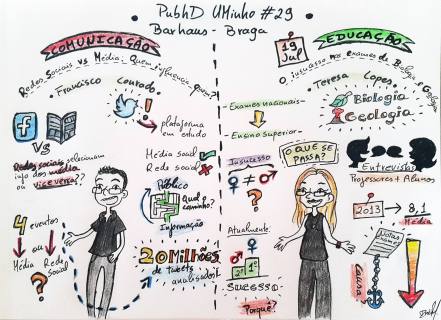 PubhD UMinho #29
Barhaus - Braga
COMUNICAÇÃO
Redes Sociais vs Média: Quem influencia quem?
Francisco Conrado
plataforma em estudo
VS
Redes sociais selecionam
info dos média
ou
vice versa??
Média social
Rede social
Público
Qual o caminho?
Informação
4 eventos
ou
Média Rede
social
20 Milhões
de tweets
analisados!
19
Jul
EDUCAÇÃO
O insucesso nos exames de Biologia e Geologia
Teresa Lopes
Biologia
Geologia
Exames nacionais
Ensino superior
Insucesso
O QUE SE
PASSA?
Entrevistas
Professores + Alunos
2013 → 8,1
Média
Atualmente:
2º 1º
Sucesso
Porquê?
Notas
exames
Causa